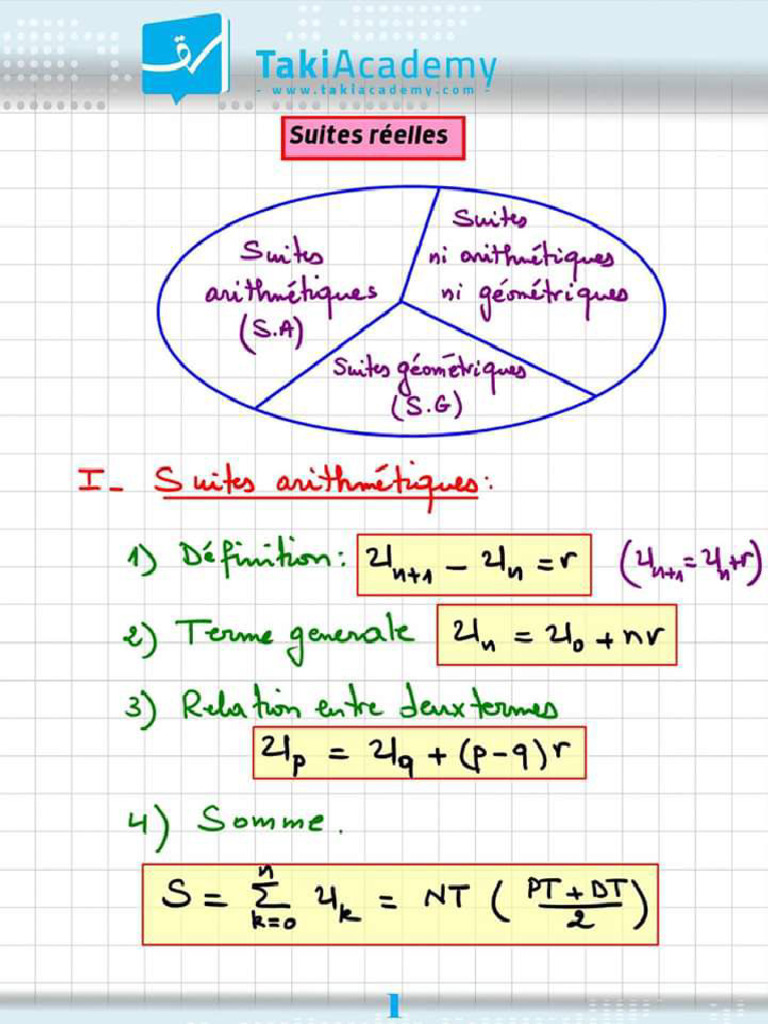 TakiAcademy
- www.takiacademy.com -
Suites réelles
Suites
arithmétiques
(S.A)
Suites
ni arithmétiques
ni géométriques
Suites géométriques
(S.G)
I- Suites arithmétiques:
1) Définition: U_{n+1} - U_n = r (U_{n+1} = U_n + r)
2) Terme generale U_n = U_0 + nr
3) Relation entre deux termes
U_p = U_q + (p-q)r
4) Somme.
S = \sum_{k=0}^{n} U_k = NT ( \frac{PT + DT}{2} )
1